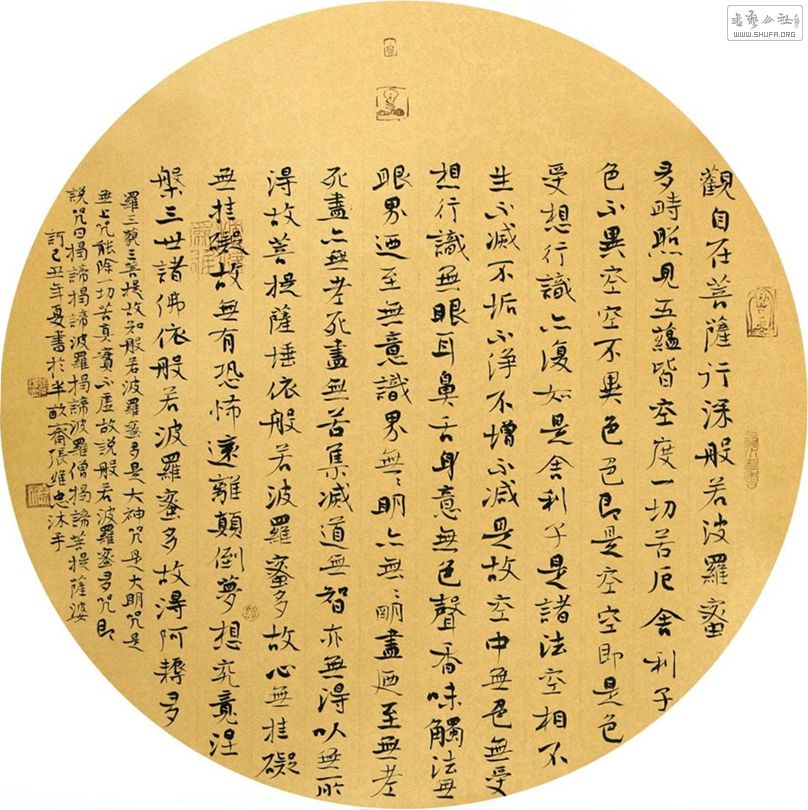 觀自在菩薩行深般若波羅蜜
多時照見五蘊皆空度一切苦厄舍利子
色不異空空不異色色即是空空即是色
受想行識亦復如是舍利子是諸法空相不
生不滅不垢不淨不增不減是故空中無色無受
想行識無眼耳鼻舌身意無色聲香味觸法無
眼界迺至無意識界無〻明亦無〻明盡迺至無老
死盡亦無老死盡無苦集滅道無智亦無得以無所
得故菩提薩埵依般若波羅蜜多故心無挂礙
無挂礙故無有恐怖遠離顛倒夢想究竟涅
槃三世諸佛依般若波羅蜜多故得阿耨多
羅三藐三菩提故知般若波羅蜜多是大神咒是大明咒是
無上咒能除一切苦真實不虛故說般若波羅蜜多咒即
說咒曰揭諦揭諦波羅揭諦波羅僧揭諦菩提薩婆
訶己丑年夏書於半畝齋張維忠沐手
書藝公社
WWW.SHUFA.ORG